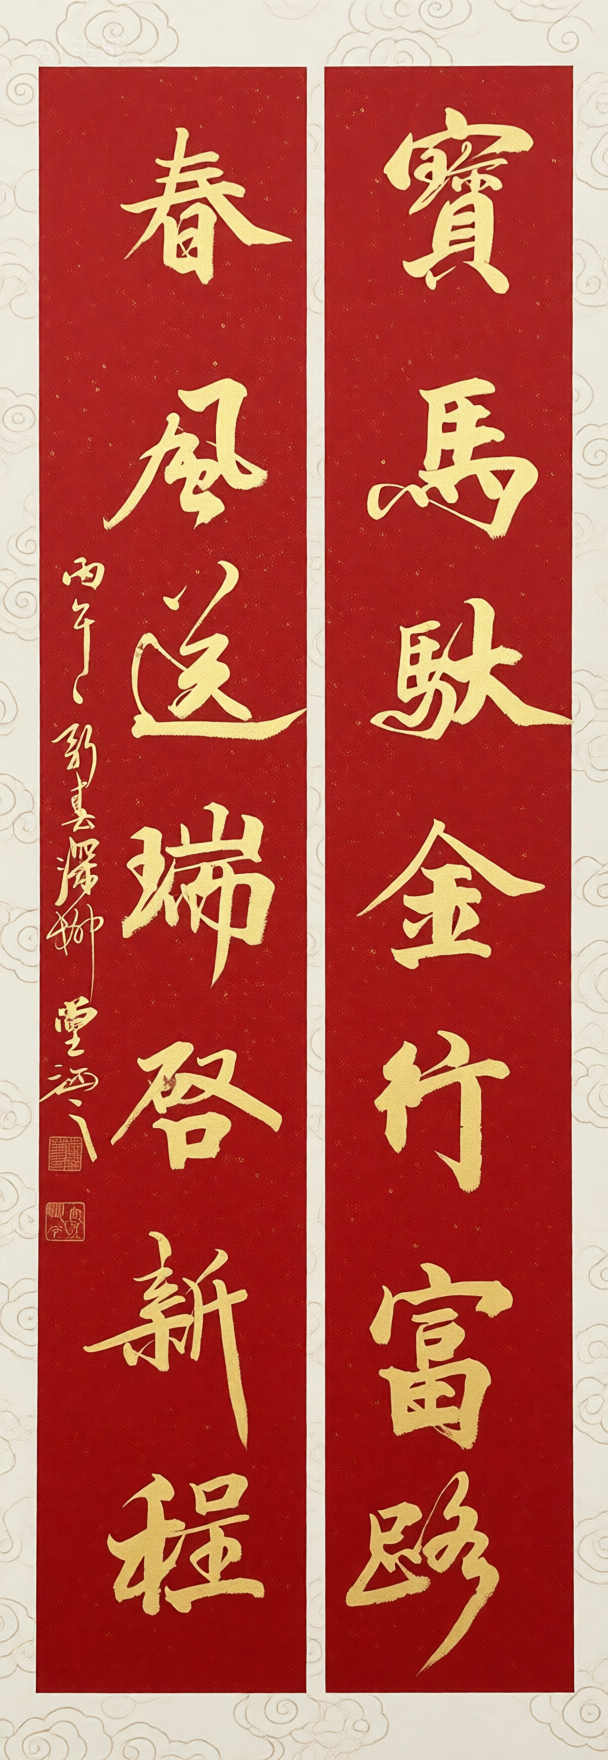 寶馬馱金行富路
春風送瑞啓新程
丙午新春深柳堂